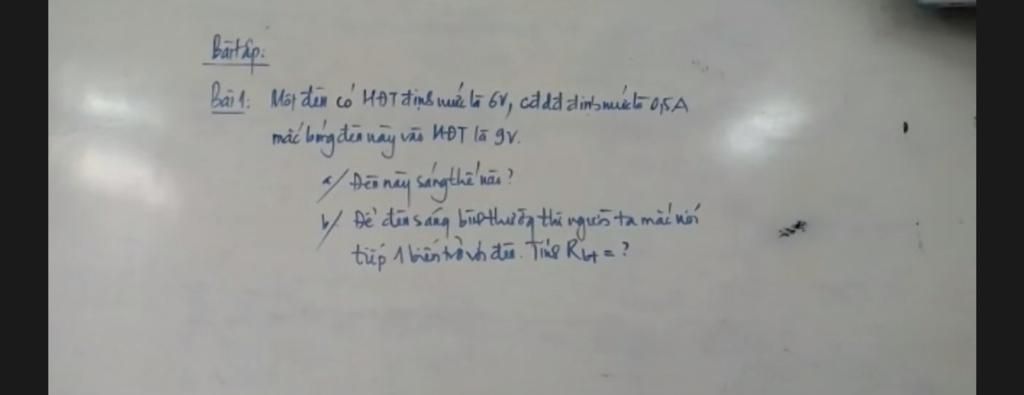 Bài tập:
Bài 1: Một đèn có HĐT định mức là 6V, cđdđ định mức là 0,5A
mắc bóng đèn này vào HĐT là 9V.
a/ Đèn này sáng thế nào?
b/ Để đèn sáng bình thường thì người ta mắc nối
tiếp 1 biến trở với đèn. Tính Rbt = ?